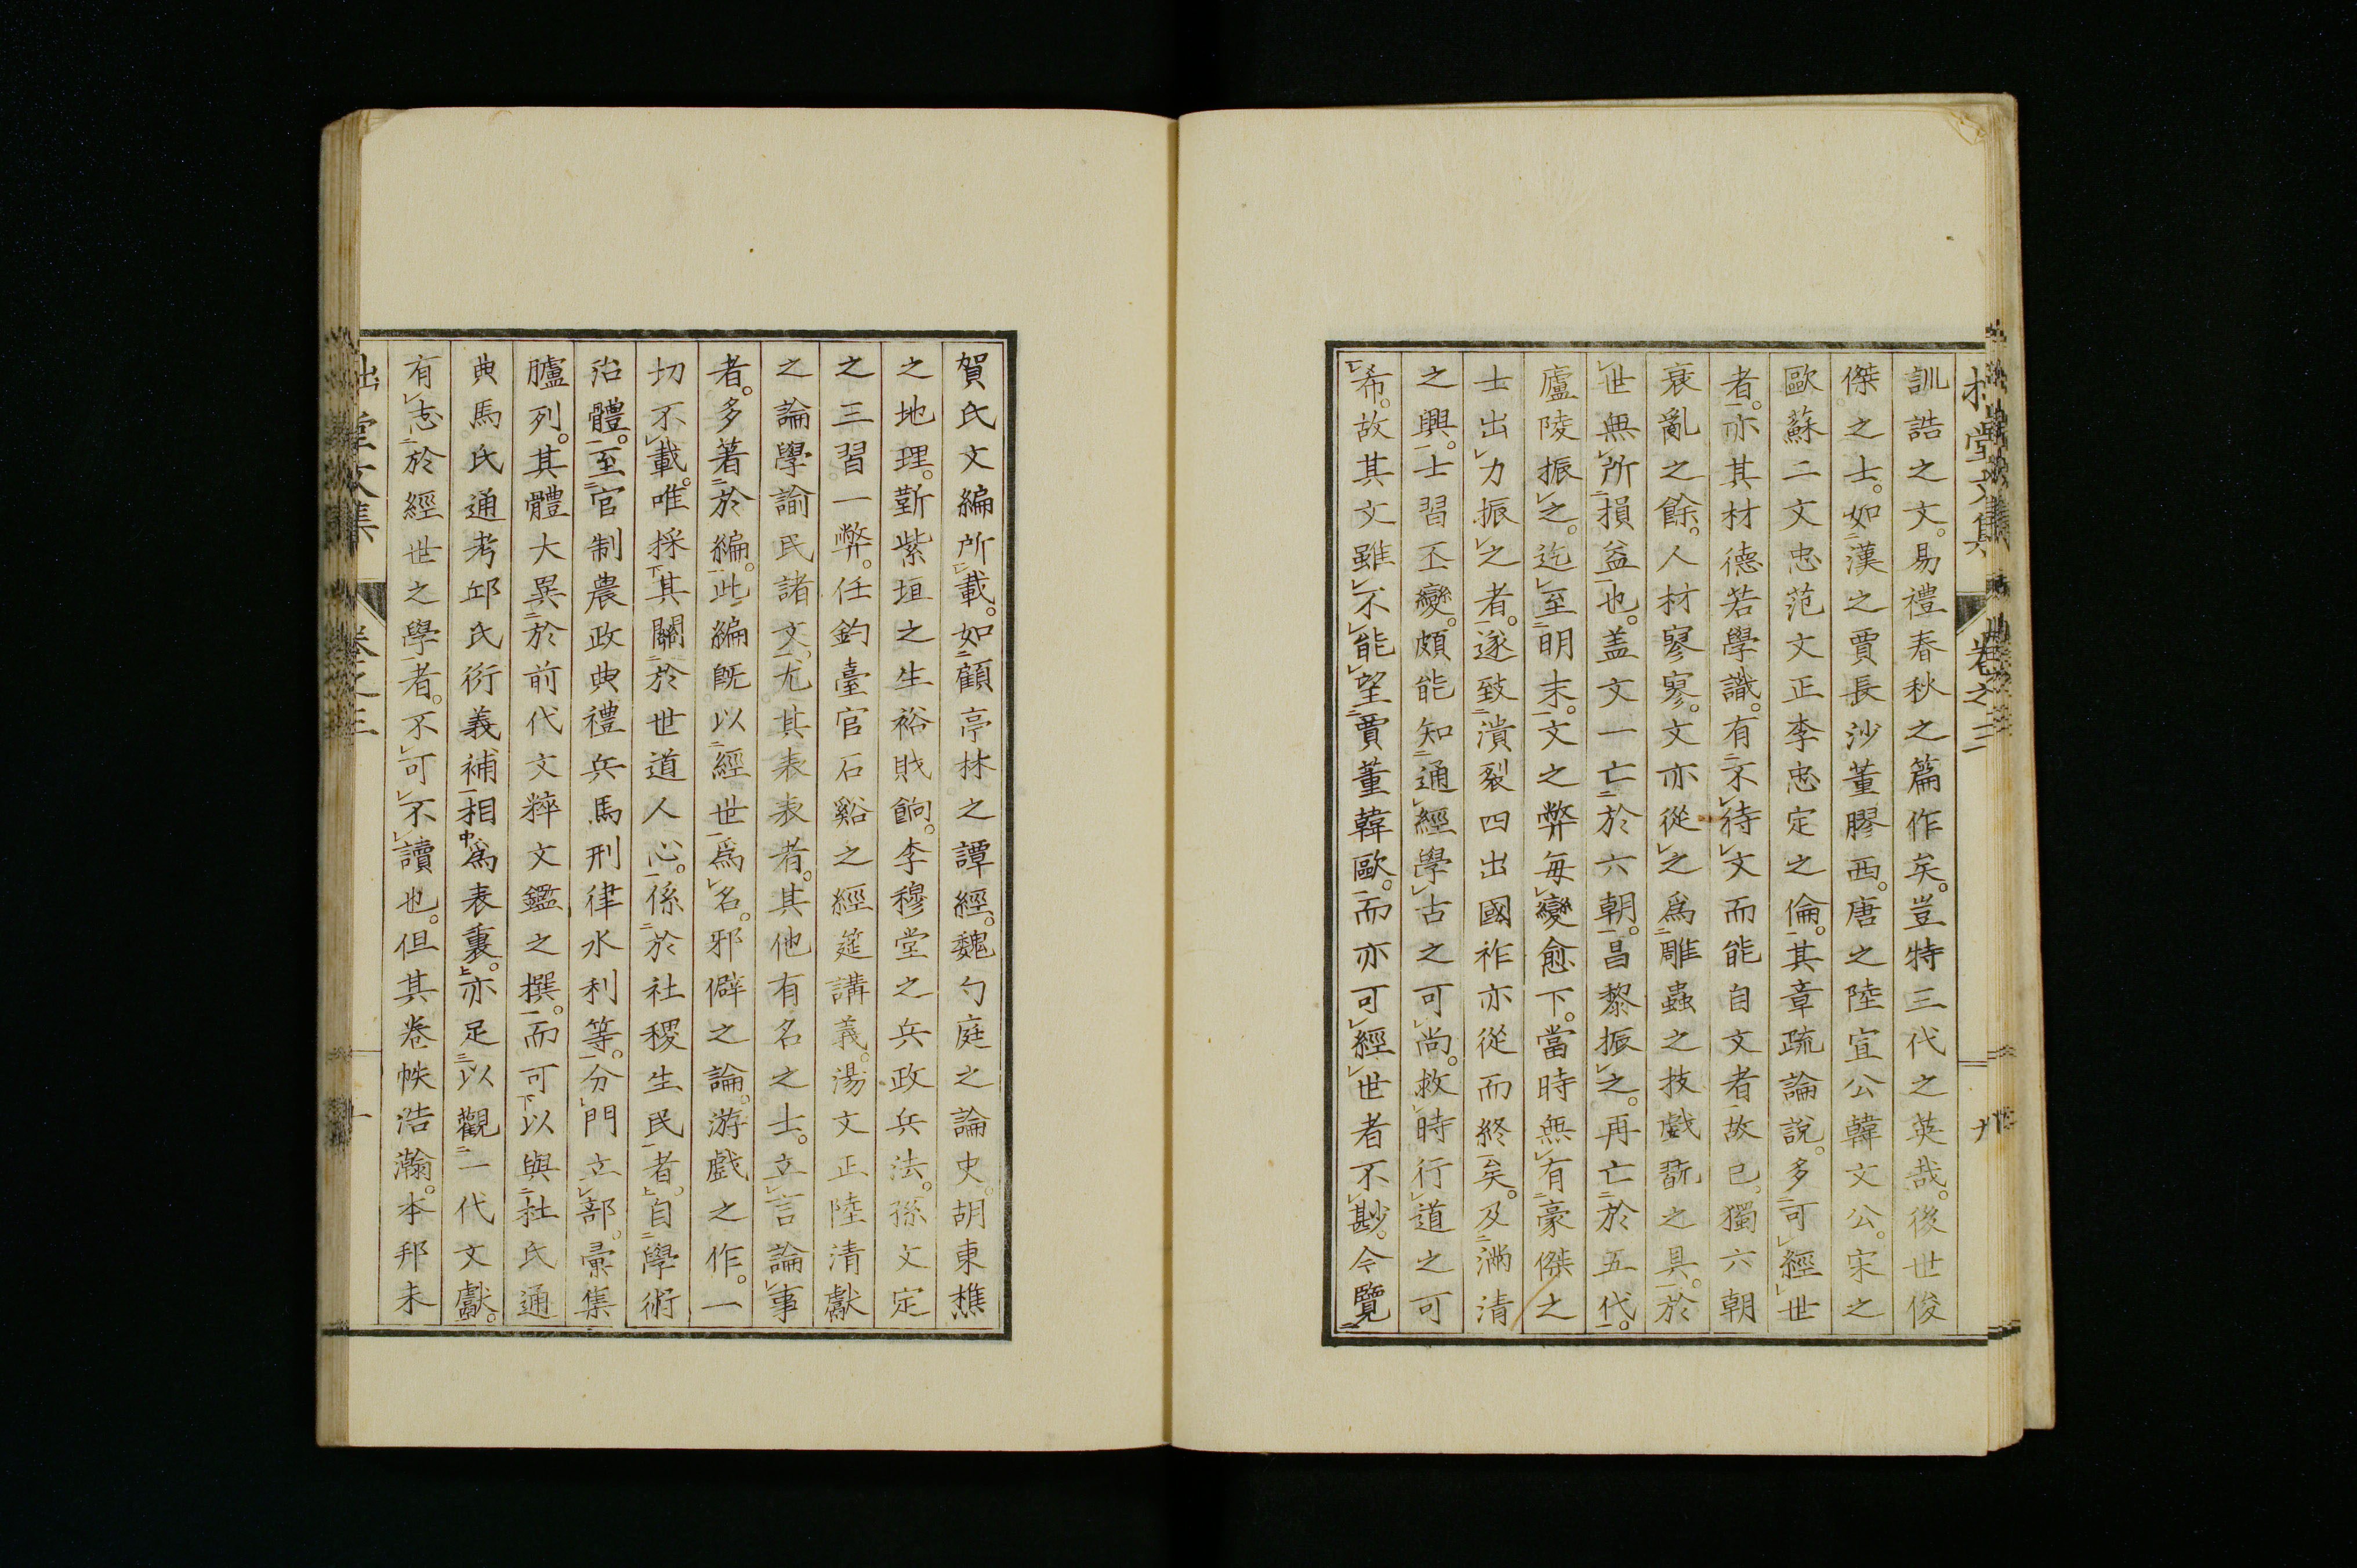 訓誥之文。易禮春秋之篇作矣。豈特三代之英哉。後世俊
傑之士。如漢之賈長沙董膠西。唐之陸宣公韓文公。宋之
歐蘇二文忠范文正李忠定之倫。其章疏論說。多可經世
者。亦其材德若學識。有不待文而能自文者故已。獨六朝
衰亂之餘。人材寥寥。文亦從之爲雕蟲之技戲翫之具。於
世無所損益也。盖文一亡於六朝。昌黎振之。再亡於五代。
廬陵振之。迄至明末。文之弊每變愈下。當時無有豪傑之
士出力振之者。遂致潰裂四出國祚亦從而終矣。及滿清
之興。士習丕變。頗能知通經學古之可尚。救時行道之可
希。故其文雖不能望賈董韓歐。而亦可經世者不尠。今覽
賀氏文編所載。如顧亭林之譚經。魏勺庭之論史。胡東樵
之地理。靳紫垣之生裕財餉。李穆堂之兵政兵法。孫文定
之三習一弊。任釣臺官石谿之經筵講義。湯文正陸清獻
之論學諭民諸文。尤其表表者。其他有名之士。立言論事
者。多著於編。此編既以經世爲名。邪僻之論。游戲之作。一
切不載。唯採其關於世道人心。係於社稷生民者。自學術
治體。至官制農政典禮兵馬刑律水利等。分門立部。彙集
臚列。其體大異於前代文粹文鑑之撰。而可以與杜氏通
典馬氏通考邱氏衍義補相爲表裏。亦足以觀一代文獻。
有志於經世之學者。不可不讀也。但其卷帙浩瀚。本邦未
拙堂文集 卷之三 九
拙堂文集 卷之三 十